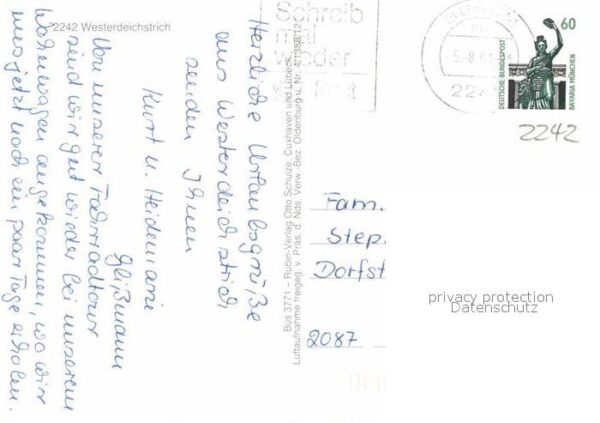 2242 Westerdeichstrich
Herzliche Urlaubsgrüße
aus Westerdeichstrich
senden Ihnen
Kurt u. Heidemarie
Glißmann
Von unserer Fahrradtour
sind wir gut wieder bei unserem
Wohnwagen angekommen, wo wir
uns jetzt noch ein paar Tage erholen.
Bus 3771 – Rubin-Verlag Otto Schulze, Cuxhaven und Lübeck
Luftaufnahme freigeg. v. Präs. d. Nds. Verw.-Bez. Oldenburg u. Nr.
Schreib
mal
wieder
Post
60
DEUTSCHE BUNDESPOST
BAVARIA MÜNCHEN
2242
Fam.
Step
Dorfst
2087
privacy protection
Datenschutz